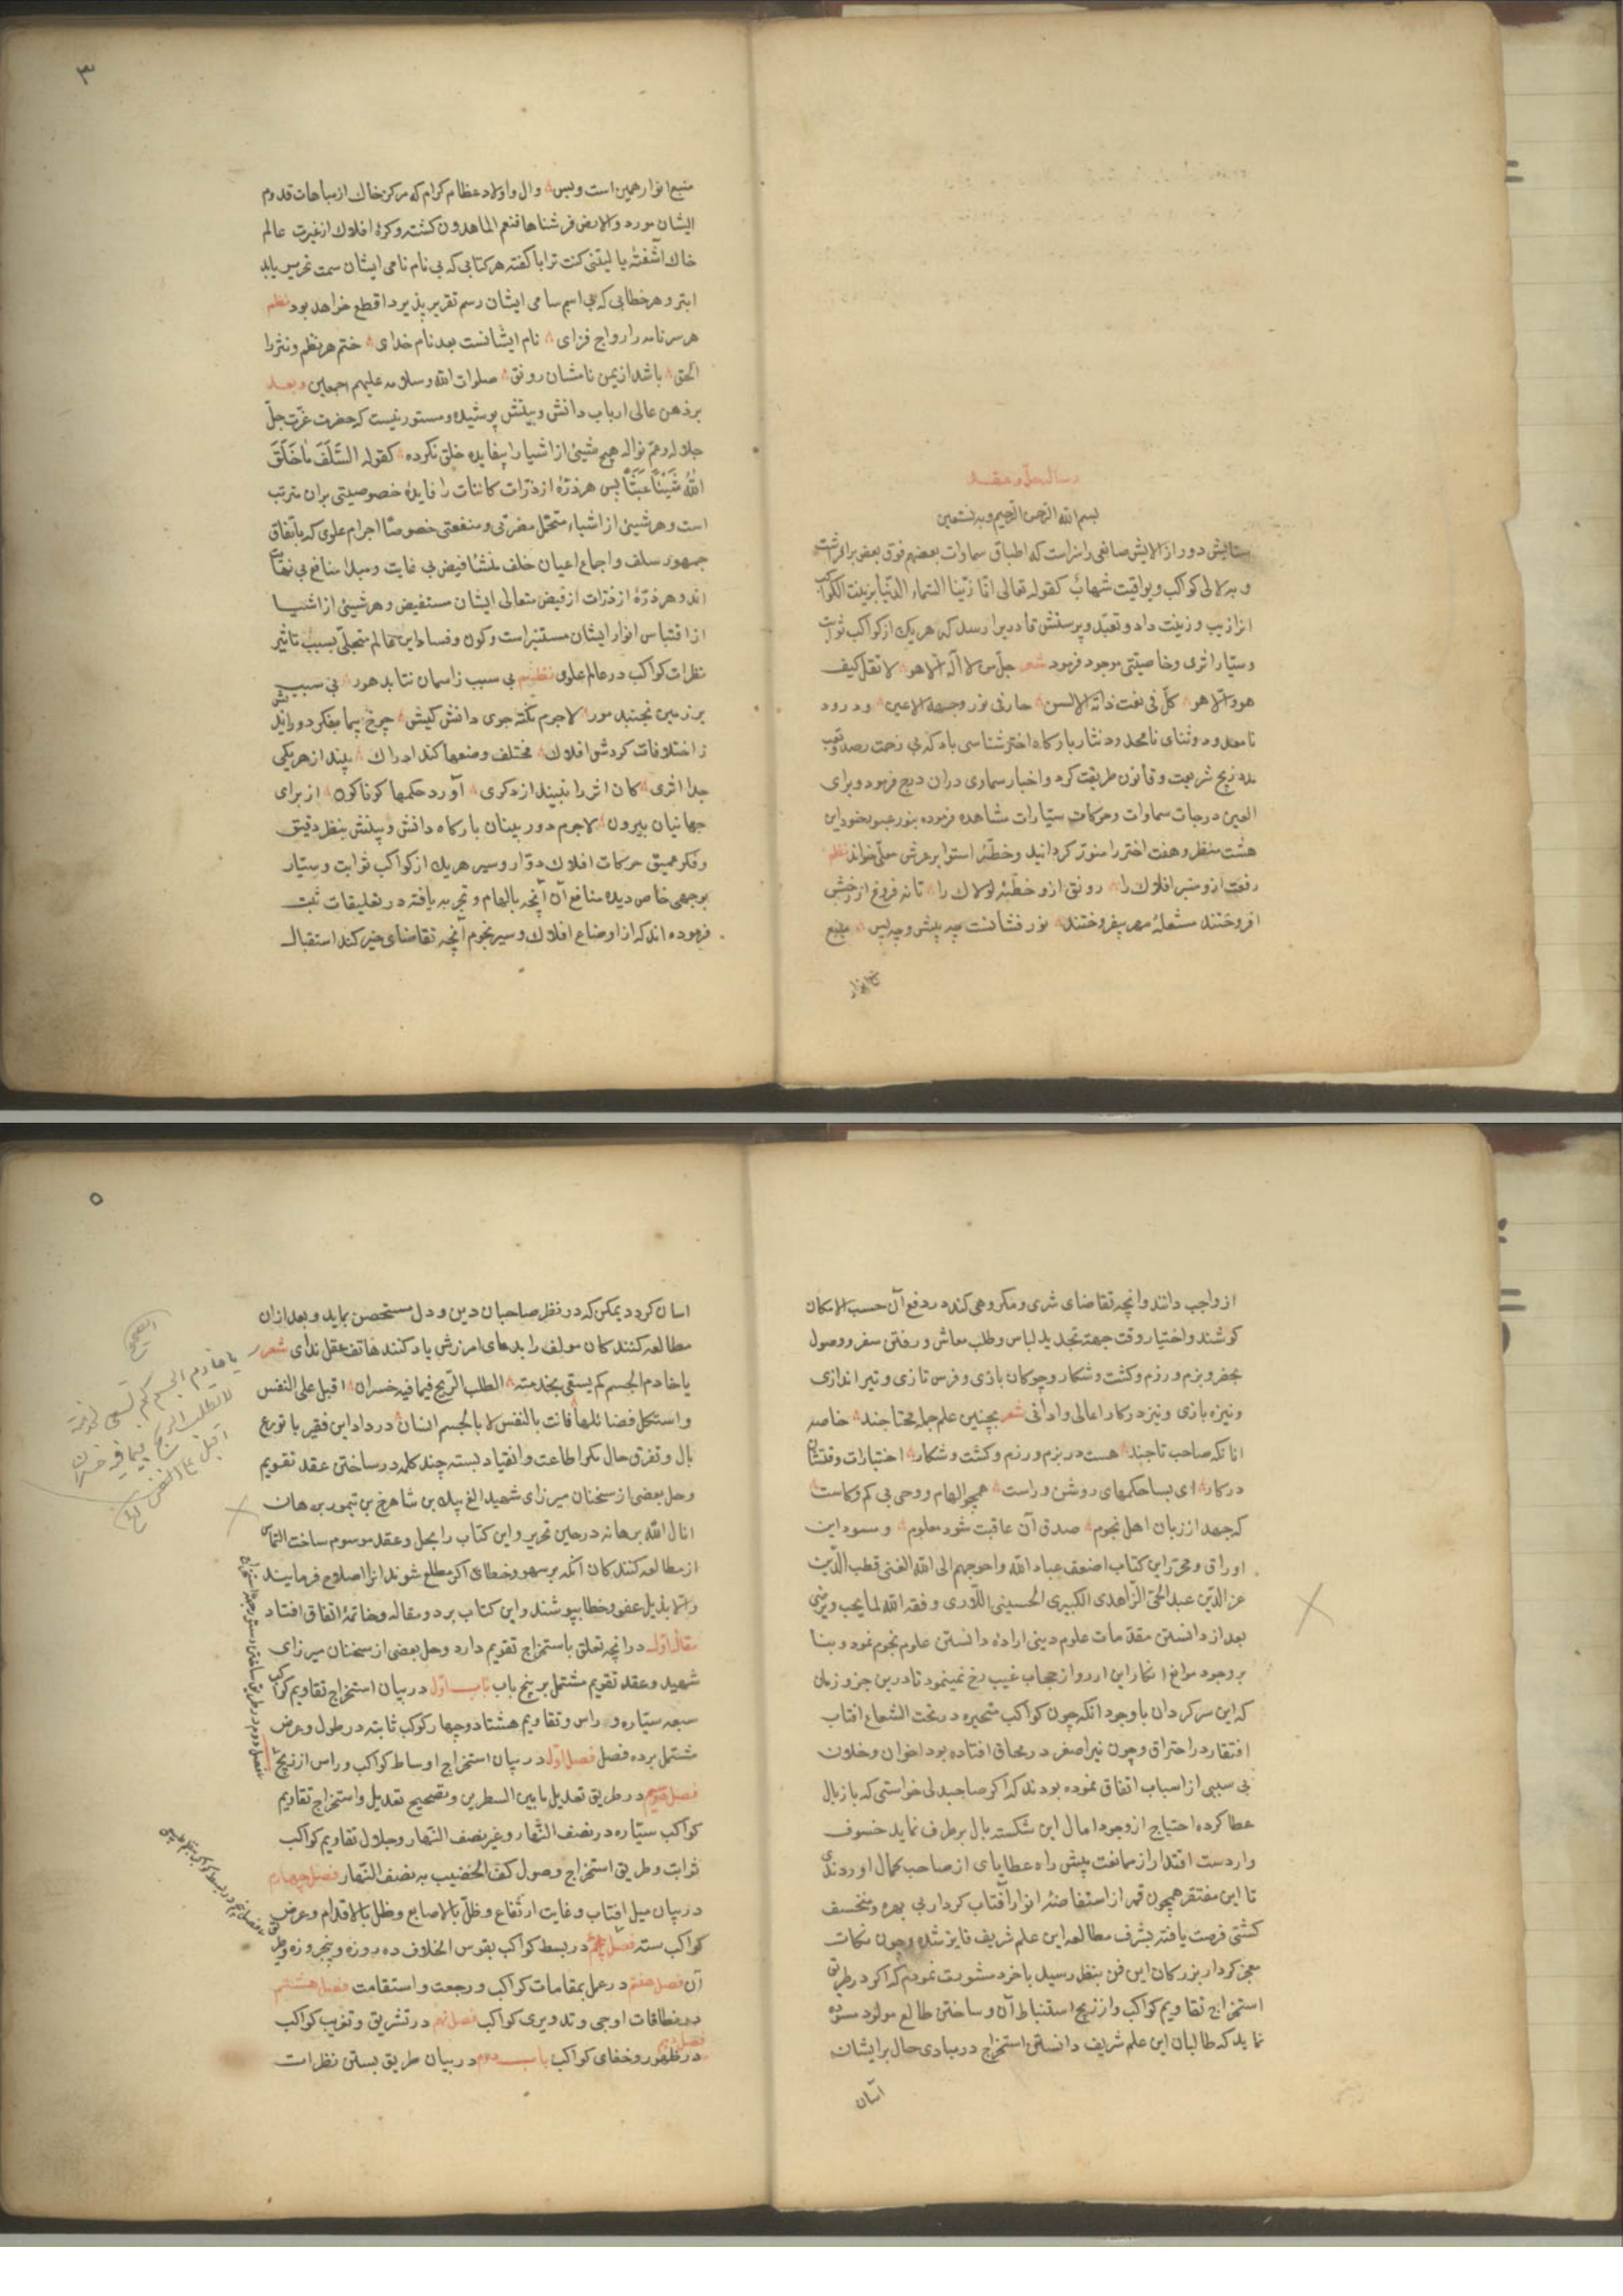 رساله حل و عقد
بسم الله الرحمن الرحیم و به نستعین
ستایش دور از الایش صانعی را سزاست که اطباق سماوات بعضهم فوق بعض برافراشت
و به لالی کواکب و یواقیت شهاب کقوله تعالی انا زینا السماء الدنیا بزینت الکواکب
انرا زیب و زینت داد و تعبد و پرستش قادریرا رسد که هر یک از کواکب ثوابت
و سیار اثری و خاصیتی موجود فرمود شعر جل من لا اله الا هو لا تقل کیف
هو الا هو کل فی نعت ذاته الالسن حار فی نور وجهه الاعین و درود
نامعدود و ثنای نامحدود نثار بارکاه اخترشناسی باد که بی زحمت رصد و تعب
زیج شریعت و قانون طریقت کرد و اخبار سماوی دران درج فرمود و برای
العین درجات سماوات و حرکات سیارات مشاهده فرموده بنور
هشت منظر و هفت اختر را منور کردانید و خطبه استوا بر عرش معلی خواند نظم
رفعت ازو منبر افلاک را رونق ازو خطبه لولاک را تا نه فروغ از رخش
افروختند مشعله مهر بیفروختند نور فشانست چه پیش و چه پس منبع
۳
منبع انوار همین است و بس و ال و اولاد عظام کرام که مرکز خاک از مباهات قدوم
ایشان مورد والارض فرشناها فنعم الماهدون کشته و کره افلاک از غیرت عالم
خاک آشفته یا لیتنی کنت ترابا کفته هر کتابی که بی نام نامی ایشان سمت تحریر یابد
ابتر و هر خطابی که بی اسم سامی ایشان رسم تقریر پذیرد اقطع خواهد بود نظم
هر سر نامه را رواج فزای نام ایشانست بعد نام خدای ختم هر نظم و نثر را
الحق باشد از یمن نامشان رونق صلوات الله و سلامه علیهم اجمعین و بعد
بر ذهن عالی ارباب دانش و بینش پوشیده و مستور نیست که حضرت عزت جل
جلاله و عم نواله هیچ شیئی از اشیا را بیفایده خلق نکرده کقوله السلف ما خلق
الله شیئا عبثا پس هر ذره از ذرات کاینات را فایده خصوصیتی بران مترتب
است و هر شیئی از اشیاء متحمل مضرتی و منفعتی خصوصا اجرام علوی که باتفاق
جمهور سلف و اجماع اعیان خلف منشا فیض بی غایت و مبدا منافع بی نهایت
اند و هر ذره از ذرات از فیض متعالی ایشان مستفیض و هر شیئی از اشیا
از اقتباس انوار ایشان مستنیر است و کون و فساد این عالم متجلی بسبب تاثیر
نظرات کواکب در عالم علوی نظم بی سبب ز اسمان نتابد هور بی سبب
بر زمین نجنبد مور لاجرم نکته جوی دانش کیش چرخ پیما بفکر دور اندیش
ز اختلافات کردش افلاک مختلف وضعها کند ادراک بیند از هر یکی
جدا اثری کان اثر را نبیند از دکری آورد حکمها کوناکون از برای
جهانیان بیرون لاجرم دور بینان بارکاه دانش و بینش بنظر دقیق
و فکر عمیق حرکات افلاک دوار و سیر هر یک از کواکب ثوابت و سیار
بر وجهی خاص دیده منافع آن آنچه بالهام و تجربه یافته در تعلیقات ثبت
فرموده اند که از اوضاع افلاک و سیر نجوم آنچه تقاضای خیر کند استقبال
از واجب دانند و انچه تقاضای شری و مکروهی کند در دفع آن حسب الامکان
کوشند و اختیار وقت جهة تجدید لباس و طلب معاش و رفتن سفر و وصول
بحضر و بزم و رزم و کشت و شکار و چوکان بازی و فرس تازی و تیر اندازی
و نیزه بازی و نیز در کار اعالی و ادانی شعر بچنین علم جمله محتاجند خاصه
انانکه صاحب تاجند هست در بزم و رزم و کشت و شکار اختیارات وقتشان
در کار ای بسا حکمهای روشن و راست همچو الهام و وحی بی کم و کاست
که جهد از زبان اهل نجوم صدق آن عاقبت شود معلوم و مسود این
اوراق و محرر این کتاب اضعف عباد الله و احوجهم الی الله الغنی قطب الدین
عز الدین عبد الحی الزاهدی الکبیری الحسینی اللاری وفقه الله لما یحب و یرضی
بعد از دانستن مقدمات علوم دینی اراده دانستن علوم نجوم نمود و بنا
بر وجود موانع انکار این ارزو از حجاب غیب رخ نمینمود تا درین جزو زمان
که این سرکردان با وجود انکه چون کواکب متحیره در تحت الشعاع افتاب
افتقار در احتراق و چون نیر اصغر در محاق افتاده بود اخوان و خلان
بی سببی از اسباب اتفاق نموده بودند که اکر صاحبدلی خواستی که بازبال
عطا کرده احتیاج از وجود امال این شکسته بال برطرف نماید خسوف
وار دست اقتدار از ممانعت پیش راه عطایای از صاحب کمال اوردندی
تا این مفتقر همچون قمر از استفاضه انوار آفتاب کردار بی بهره و منخسف
کشتی فرصت یافته بشرف مطالعه این علم شریف فایز شده و چون نکات
معجز کردار بزرکان این فن بنظر رسید با خرد مشورت نمودم که اکر در طریق
استخراج تقاویم کواکب و از زیج استنباط آن و ساختن طالع مولود مسوده
نماید که طالبان این علم شریف دانستن استخراج در مبادی حال بر ایشان
آسان
۵
اسان کردد یمکن که در نظر صاحبان دین و دل مستحصن نماید و بعد ازان
مطالعه کنندکان مولف را بدعای امرزش یاد کنند هاتف عقل ندای شعر در
یا خادم الجسم کم یسقی بخدمته الطلب الربح فیما فیه خسران اقبل علی النفس
و استکمل فضائلها فانت بالنفس لا بالجسم انسان در داد این فقیر با توزع
بال و تفرق حال کمر اطاعت و انقیاد بسته چند کلمه در ساختن عقد تقویم
و حل بعضی از سخنان میرزای شهید الغ بیک بن شاهرخ بن تیمور برهان
انال الله برهانه در حین تحریر و این کتاب را بحل و عقد موسوم ساخت التماس
از مطالعه کنندکان آنکه بر سهو و خطای اکر مطلع شوند انرا اصلاح فرمایند
و الا بذیل عفو خطا بپوشند و این کتاب بر دو مقاله و خاتمه اتفاق افتاد
مقاله اول در انچه تعلق باستخراج تقویم دارد و حل بعضی از سخنان میرزای
شهید و عقد تقویم مشتمل بر پنج باب باب اول در بیان استخراج تقاویم کواکب
سبعه سیاره و راس و تقاویم هشتاد و چهار کوکب ثابته در طول و عرض
مشتمل بر ده فصل فصل اول در بیان استخراج اوساط کواکب و راس از زیج
فصل سیم در طریق تعدیل مابین السطرین و تصحیح تعدیل و استخراج تقاویم
کواکب سیاره در نصف النهار و غیر نصف النهار و جدول تقاویم کواکب
ثوابت و طریق استخراج وصول کف الخضیب به نصف النهار فصل چهارم
در بیان میل افتاب و غایت ارتفاع و ظل بالاصابع و ظل بالاقدام و عرض
کواکب سته فصل پنجم در بسط کواکب بقوس الخلاف ده روزه و پنجروزه و طریق
آن فصل هفتم در عمل بمقامات کواکب و رجعت و استقامت فصل هشتم
در نطاقات اوجی و تدویری کواکب فصل نهم در تشریق و تغریب کواکب
فصل دهم
در ظهور و خفای کواکب باب دوم در بیان طریق بستن نظرات
الصحیح
یا خادم الجسم کم تسعی لخدمته
لتطلب الربح فیما فیه خسران
اقبل علی النفس الخ